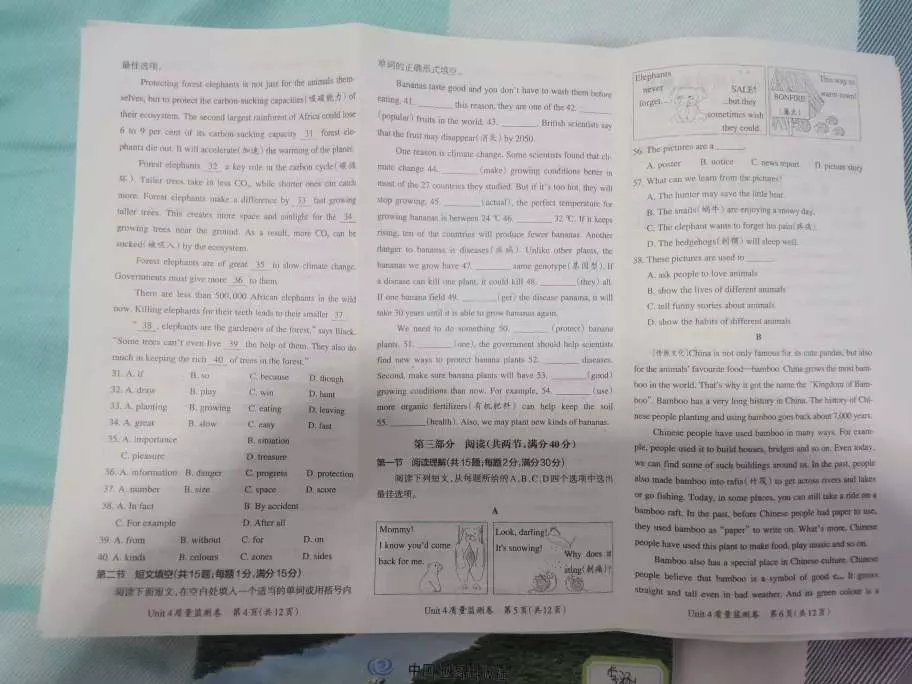 最佳选项。
Protecting forest elephants is not just for the animals them-
selves, but to protect the carbon-sucking capacities(吸碳能力) of
their ecosystem. The second largest rainforest of Africa could lose
6 to 9 per cent of its carbon-sucking capacity 31 forest ele-
phants die out. It will accelerate(加速) the warming of the planet.
Forest elephants 32 a key role in the carbon cycle(碳循
环). Taller trees take in less CO₂, while shorter ones can catch
more. Forest elephants make a difference by 33 fast growing
taller trees. This creates more space and sunlight for the 34
growing trees near the ground. As a result, more CO₂ can be
sucked(被吸入) by the ecosystem.
Forest elephants are of great 35 to slow climate change.
Governments must give more 36 to them.
There are less than 500,000 African elephants in the wild
now. Killing elephants for their teeth leads to their smaller 37 .
" 38 , elephants are the gardeners of the forest," says Black.
"Some trees can't even live 39 the help of them. They also do
much in keeping the rich 40 of trees in the forest."
31. A. if B. so C. because D. though
32. A. draw B. play C. win D. hunt
33. A. planting B. growing C. eating D. leaving
34. A. great B. slow C. easy D. fast
35. A. importance B. situation
C. pleasure D. treasure
36. A. information B. danger C. progress D. protection
37. A. number B. size C. space D. score
38. A. In fact B. By accident
C. For example D. After all
39. A. from B. without C. for D. on
40. A. kinds B. colours C. zones D. sides
第二节 短文填空(共15题;每题1分,满分15分)
阅读下面短文,在空白处填入一个适当的单词或用括号内
Unit 4质量监测卷 第4页(共12页)
单词的正确形式填空。
Bananas taste good and you don't have to wash them before
eating. 41.________ this reason, they are one of the 42.________
(popular) fruits in the world. 43.________ British scientists say
that the fruit may disappear(消失) by 2050.
One reason is climate change. Some scientists found that cli-
mate change 44.________ (make) growing conditions better in
most of the 27 countries they studied. But if it's too hot, they will
stop growing. 45.________ (actual), the perfect temperature for
growing bananas is between 24 ℃ 46.________ 32 ℃. If it keeps
rising, ten of the countries will produce fewer bananas. Another
danger to bananas is diseases(疾病). Unlike other plants, the
bananas we grow have 47.________ same genotype(基因型). If
a disease can kill one plant, it could kill 48.________ (they) all.
If one banana field 49.________ (get) the disease panama, it will
take 30 years until it is able to grow bananas again.
We need to do something 50.________ (protect) banana
plants. 51.________ (one), the government should help scientists
find new ways to protect banana plants 52.________ diseases.
Second, make sure banana plants will have 53.________ (good)
growing conditions than now. For example, 54.________ (use)
more organic fertilizers(有机肥料) can help keep the soil
55.________ (health). Also, we may plant new kinds of bananas.
第三部分 阅读(共两节,满分40分)
第一节 阅读理解(共15题;每题2分,满分30分)
阅读下列短文,从每题所给的A、B、C、D四个选项中选出
最佳选项。
A
Mommy!
I know you'd come
back for me.
Look, darling!
It's snowing!
Why does it
sting(刺痛)?
Unit 4质量监测卷 第5页(共12页)
Elephants
never
forget...
SALE!
...but they
sometimes wish
they could.
This way to
warm town!
BONFIRE
篝火!
56. The pictures are a ________.
A. poster B. notice C. news report D. picture story
57. What can we learn from the pictures?
A. The hunter may save the little bear.
B. The snails(蜗牛) are enjoying a snowy day.
C. The elephant wants to forget his pain(疼痛).
D. The hedgehogs(刺猬) will sleep well.
58. These pictures are used to ________.
A. ask people to love animals
B. show the lives of different animals
C. tell funny stories about animals
D. show the habits of different animals
B
[传统文化]China is not only famous for its cute pandas, but also
for the animals' favourite food—bamboo. China grows the most bam-
boo in the world. That's why it got the name the "Kingdom of Bam-
boo". Bamboo has a very long history in China. The history of Chi-
nese people planting and using bamboo goes back about 7,000 years.
Chinese people have used bamboo in many ways. For exam-
ple, people used it to build houses, bridges and so on. Even today,
we can find some of such buildings around us. In the past, people
also made bamboo into rafts(竹筏) to get across rivers and lakes
or go fishing. Today, in some places, you can still take a ride on a
bamboo raft. In the past, before Chinese people had paper to use,
they used bamboo as "paper" to write on. What's more, Chinese
people have used this plant to make food, play music and so on.
Bamboo also has a special place in Chinese culture. Chinese
people believe that bamboo is a symbol of good It grows
straight and tall even in bad weather. And its green colour is a
Unit 4质量监测卷 第6页(共12页)
中国地图出版社